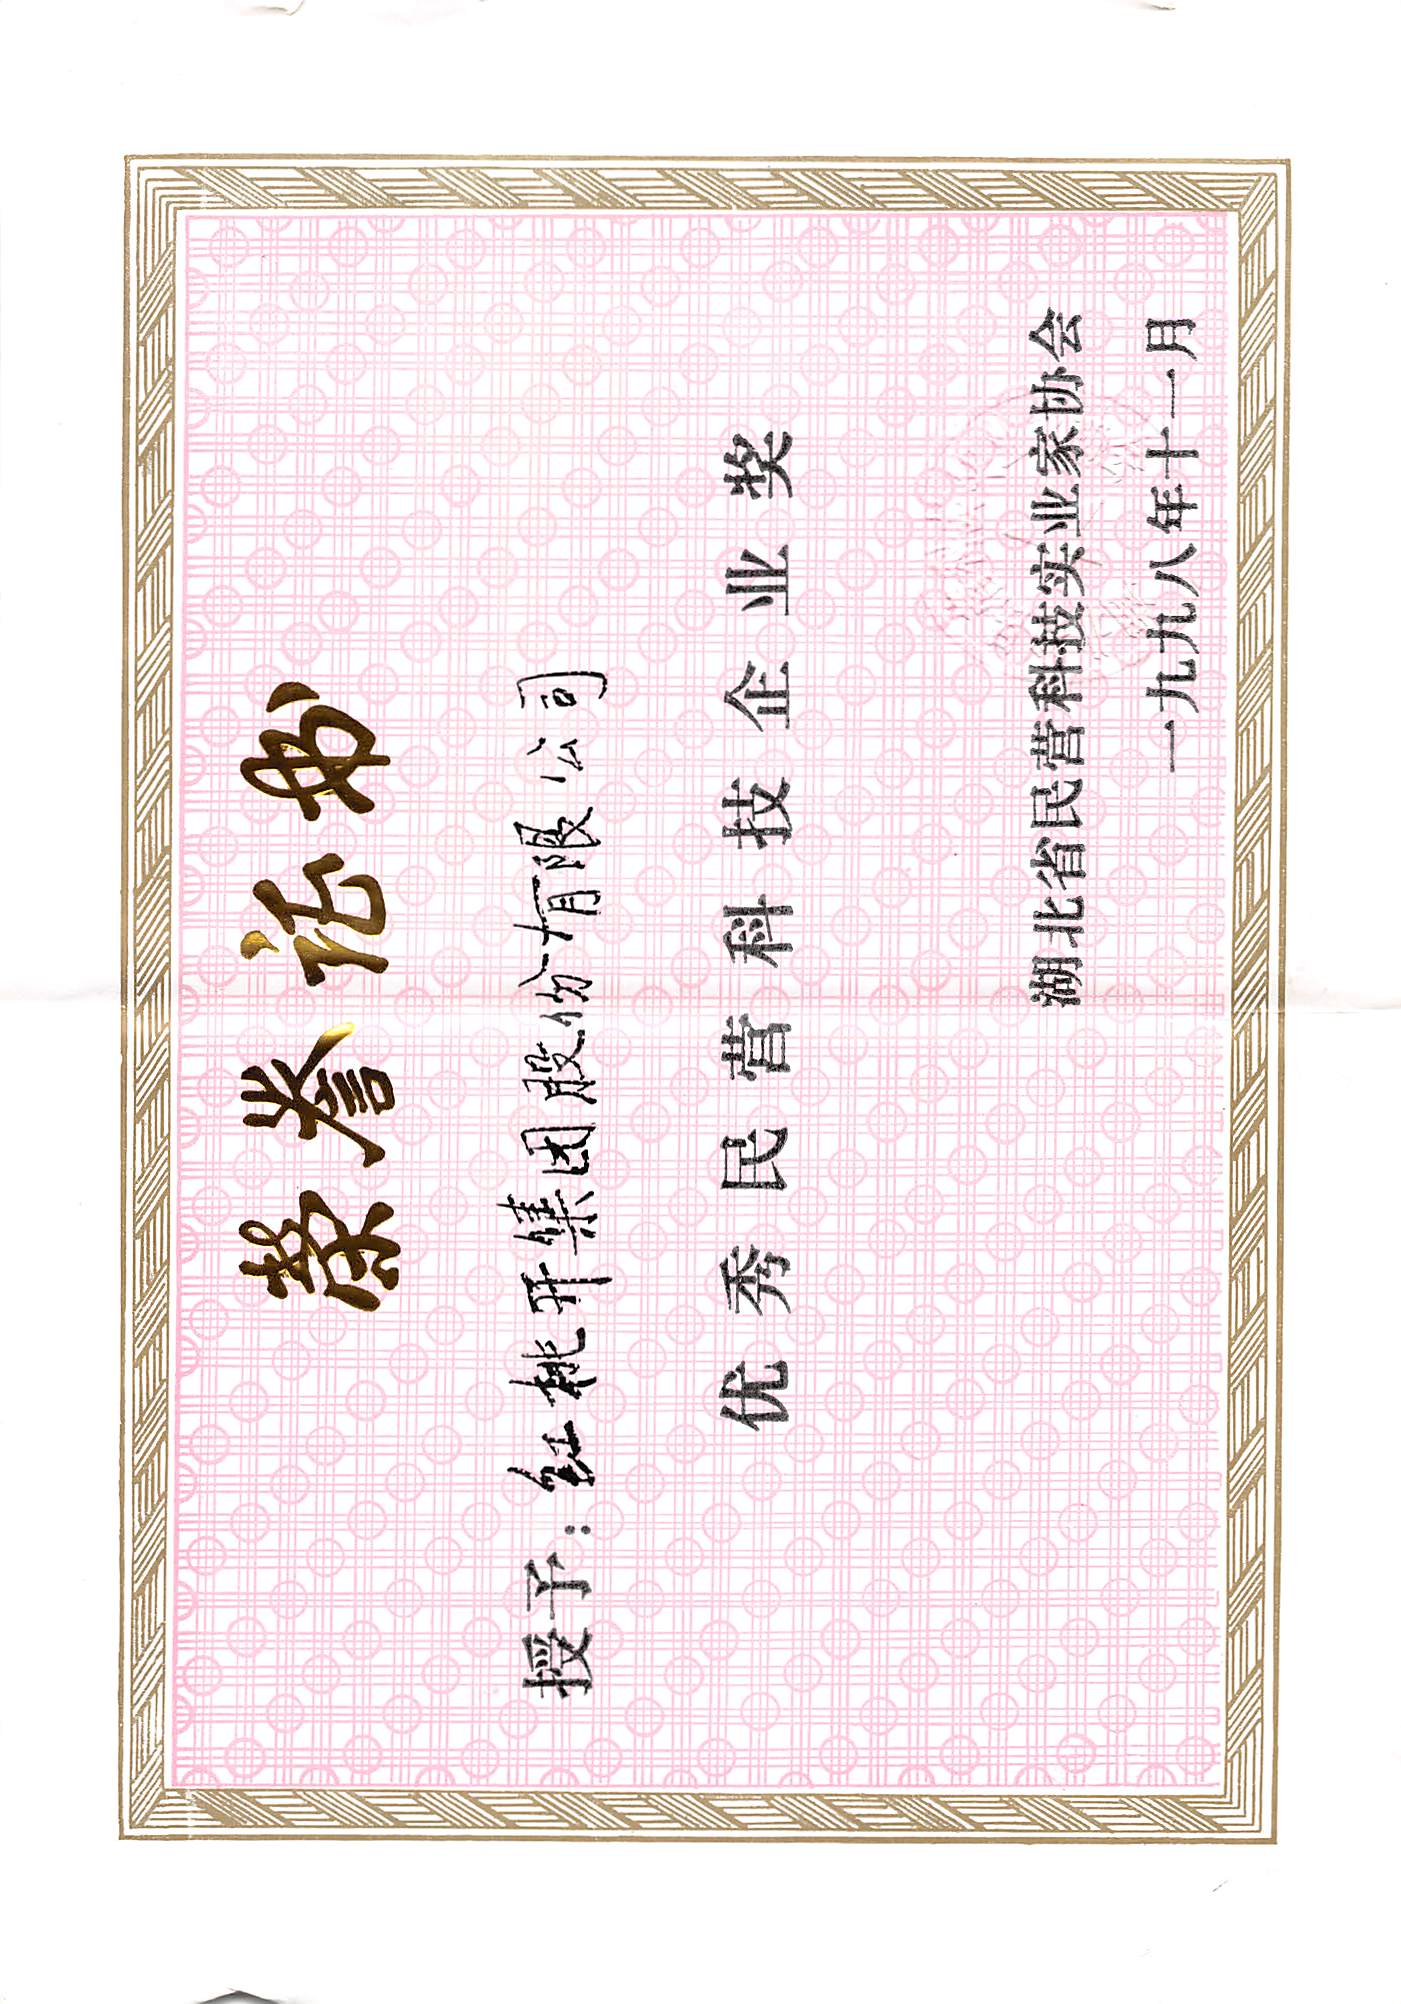 荣誉证书
授予：红桃开集团股份有限公司
优秀民营科技企业奖
湖北省民营科技实业家协会
一九九八年十一月